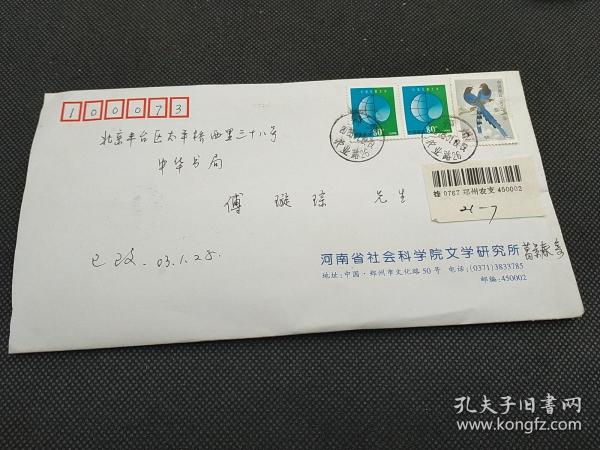 100073
北京丰台区太平桥西里三十八号
中华书局
傅璇琮 先生
80分
80分
挂 0767 郑州农支 450002
21-7
河南省社会科学院文学研究所 葛景春寄
地址:中国·郑州市文化路50号 电话:(0371)3833785
邮编:450002
已改 03.1.28.
孔夫子旧书网
www.kongfz.com